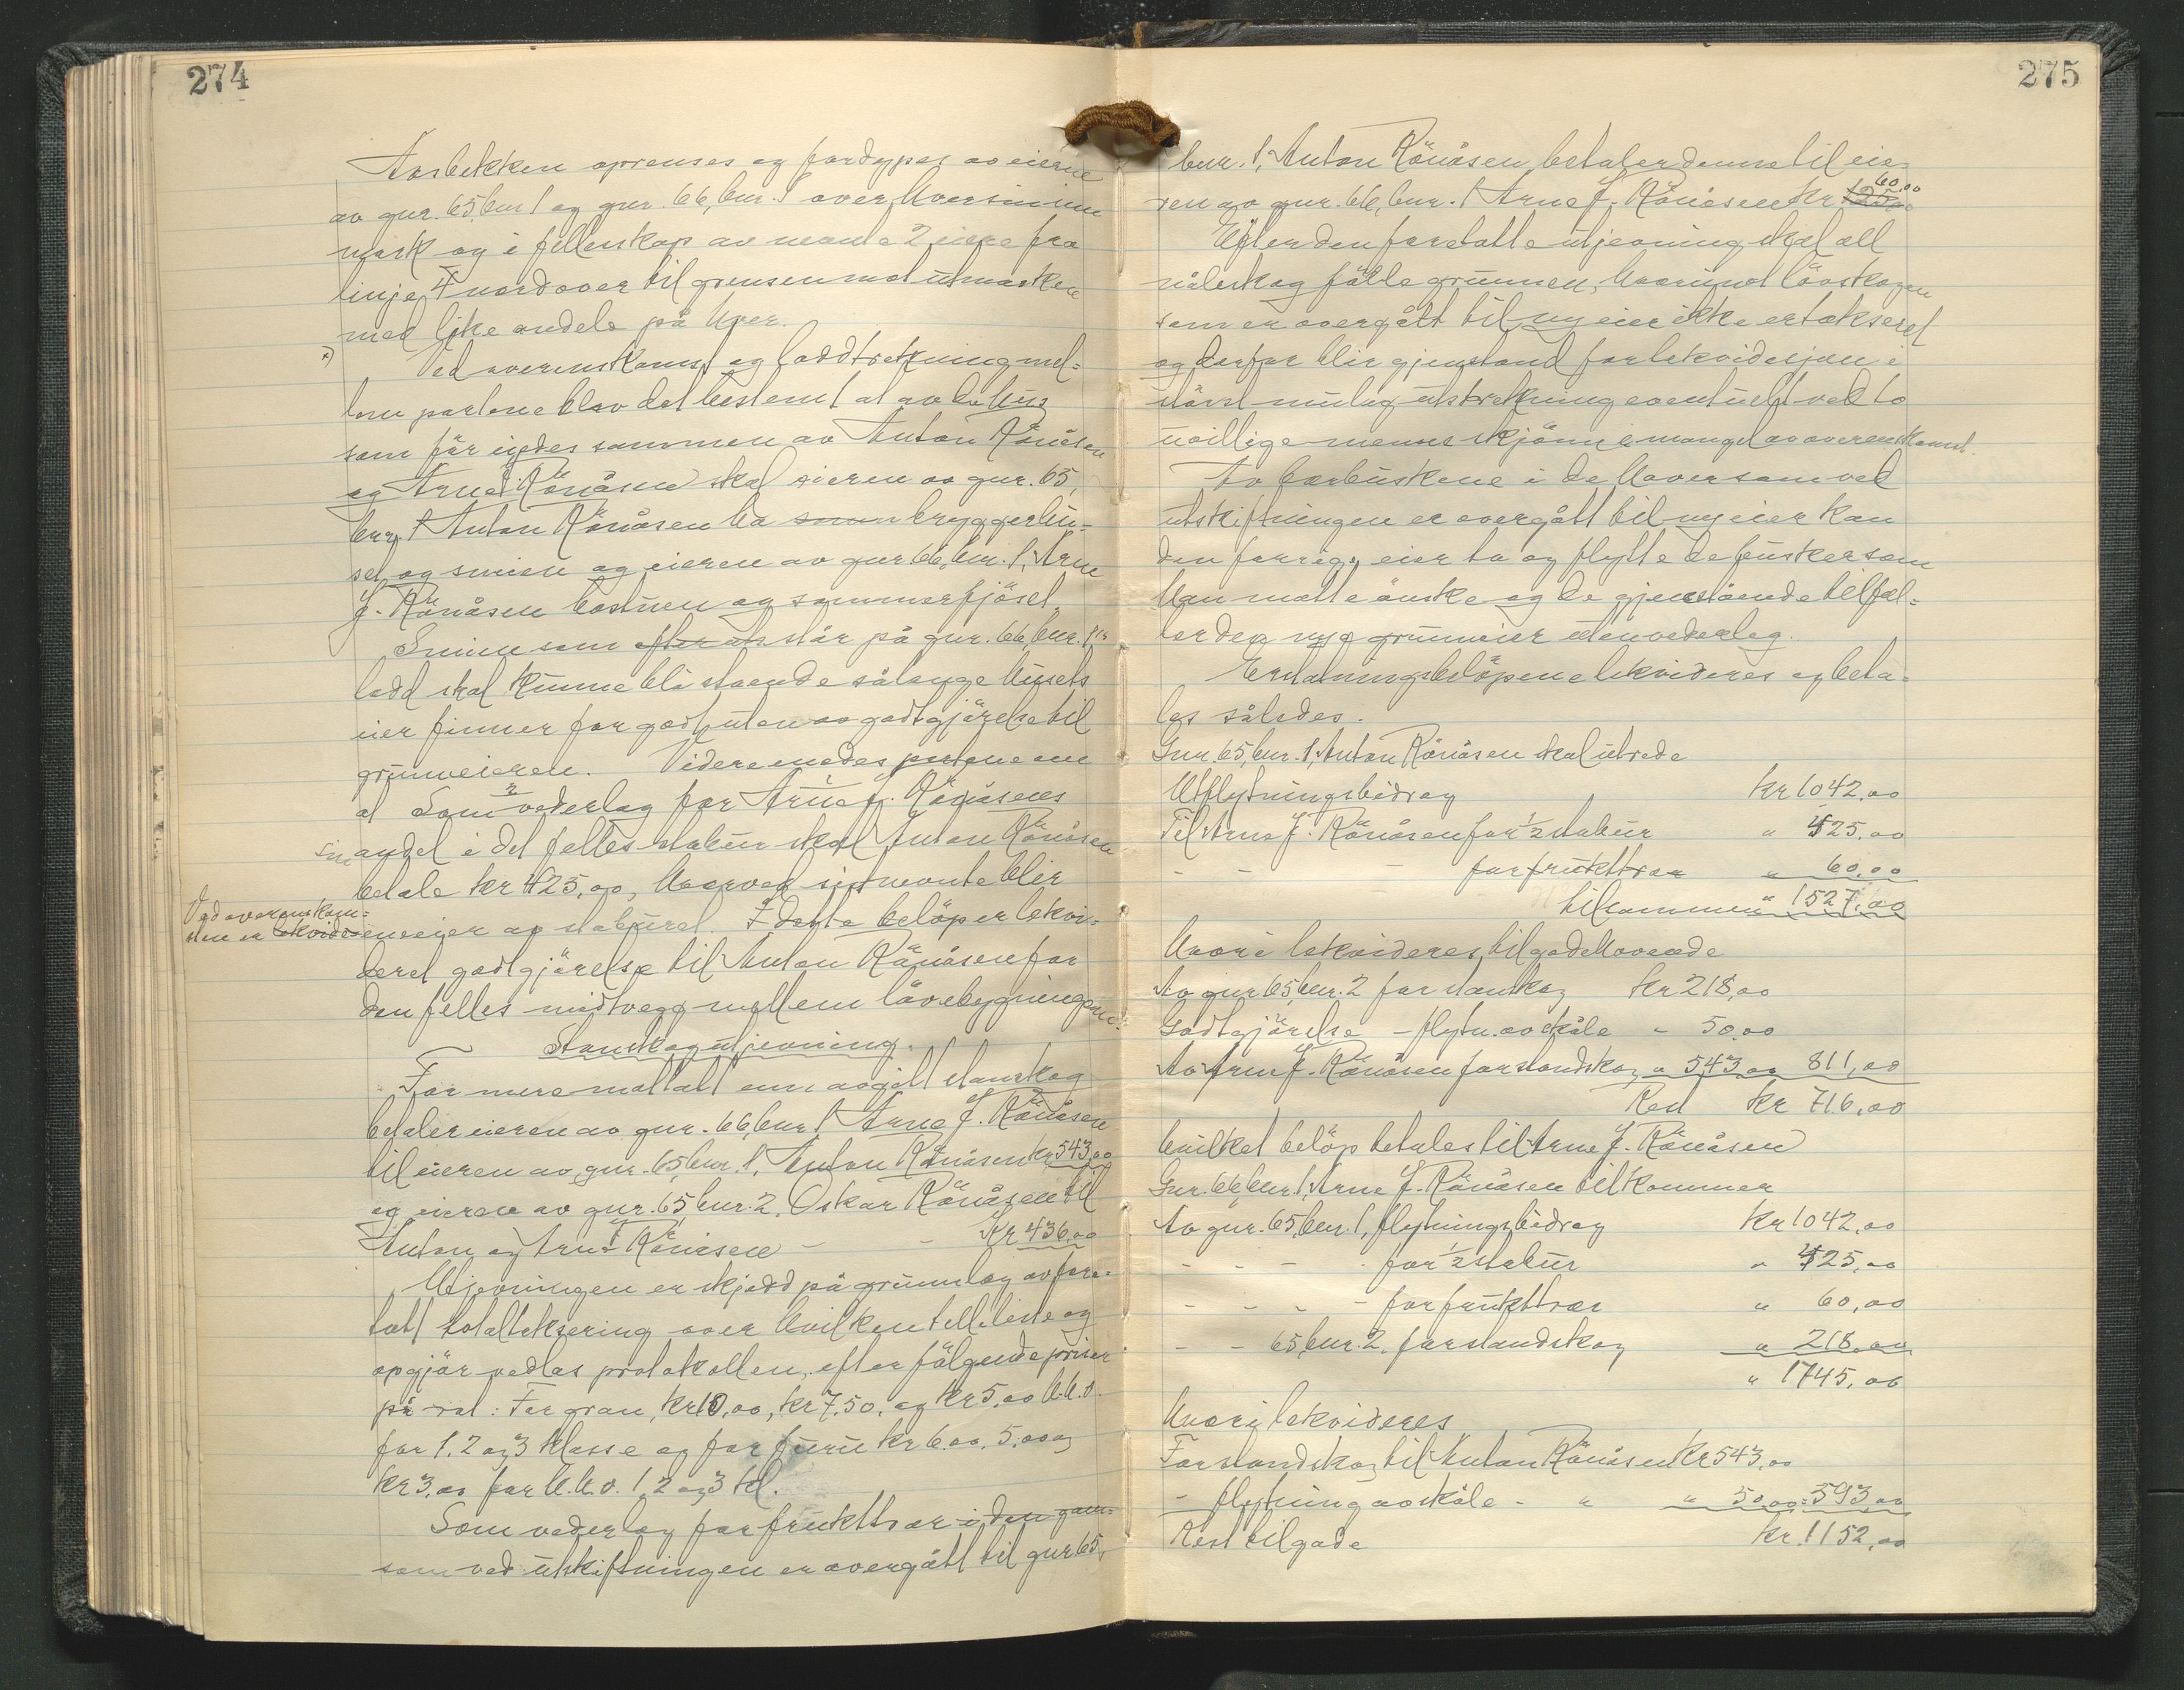 274
Aasbekken oprenses og fordypes av eierne
av gnr. 65, bnr 1 og gnr. 66, bnr. 1 over hver sin inn
mark og i fellesskap av nevnte 2 eiere fra
linje 4 nordover til grensen mot utmarken
med like andele på hver.
x) Ved overenskomst og loddtrekning mel=
lem partene blev det bestemt at av de hus
som før eiedes sammen av Anton Rönåsen
og Arne J. Rönåsen skal eieren av gnr. 65,
bnr. 1 Anton Rönåsen ha bryggerhu=
set og smien og eieren av gnr 66, bnr. 1, Arne
J. Rönåsen bastuen og sommerfjöset.
Smien som står på gnr. 66, bnr. 1's
lodd skal kunne bli staende sålenge husets
eier finner for godt uten godtgjörelse til
grunneieren. Videre enedes partene om
at Som vederlag for Arne J. Rönåsens
andel i det felles stabur skal Anton Rönåsen
betale kr 425,00, hvorved sistnevnte blir
Ved overenskom=
sten er
eneeier av staburet. I dette belöp er lekvi=
deret godtgjörelse til Anton Rönåsen for
den felles midtvegg mellem låvebygningene.
Standskogutjevning.
For mere mottatt enn avgitt standskog
betaler eieren av gnr. 66, bnr 1 Arne J. Rönåsen
til eieren av gnr. 65, bnr. 1, Anton Rönåsen kr 543,00
og eieren av gnr. 65, bnr. 2, Oskar Rönåsen til
Anton og Arne J. Rönåsen - - Kr 436,00
Utjevningen er skjedd på grunnlag av fore=
tatt totaltaksering over hvilken telleliste og
opgjör vedlas protokollen, efter fölgende priser
på rot: For gran, kr 10,00, kr 7,50, og kr 5,00 h.h.v.
for 1, 2 og 3 klasse og for furu kr 6,00, 5,00 og
kr 3,00 for h.h.v. 1, 2 og 3 kl.
Som vederlag for frukttrær i den gam=
som ved utskiftningen er overgått til gnr 65,
275
bnr. 1, Anton Rönåsen, betaler denne til eie=
ren av gnr. 66, bnr. 1 Arne J. Rönåsen kr 60,00
Efter den foretatte utjevning skal all
nåleskog fölle grunnen, hvorimot lövskogen
som er overgått til ny eier ikke er taksert
og derfor blir gjenstand for lekvidasjon i
störst mulig utstrekning eventuelt ved to
uvillige menns skjönn i mangel av overenskomst.
Av bærbuskene i de haver som ved
utskiftningen er overgått til ny eier kan
den forrige eier ta og flytte de busker som
han måtte önske og de gjenstående tilfal=
ler den nye grunneier uten vederlag.
Erstatningsbelöpene lekvideres og beta=
les således.
Gnr. 65, bnr. 1, Anton Rönåsen skal utrede
Utflytningsbidrag kr 1042,00
Til Arne J. Rönåsen for 1/2 stabur " 425,00
- - - for frukttrær " 60,00
tilsammen " 1527,00
Hvori lekvideres tilgodehavende
Av gnr 65, bnr. 2 for standskog kr 218,00
Godtgjörelse - flytn. av skåle " 50,00
Av Arne J. Rönåsen for standskog " 543,00 811,00
Rest kr 716,00
hvilket belöp betales til Arne J. Rönåsen
Gnr. 66, bnr. 1, Arne J. Rönåsen tilkommer
Av gnr. 65, bnr. 1, flytningsbidrag kr 1042,00
- - - - for 1/2 stabur " 425,00
- - - - for frukttrær " 60,00
- - 65, bnr. 2. for standskog " 218,00
" 1745,00
Hvori lekvideres
For standskog til Anton Rönåsen kr 543,00
- flytning av skåle - " " 50,00 = 593,00
Rest tilgode kr. 1152,00